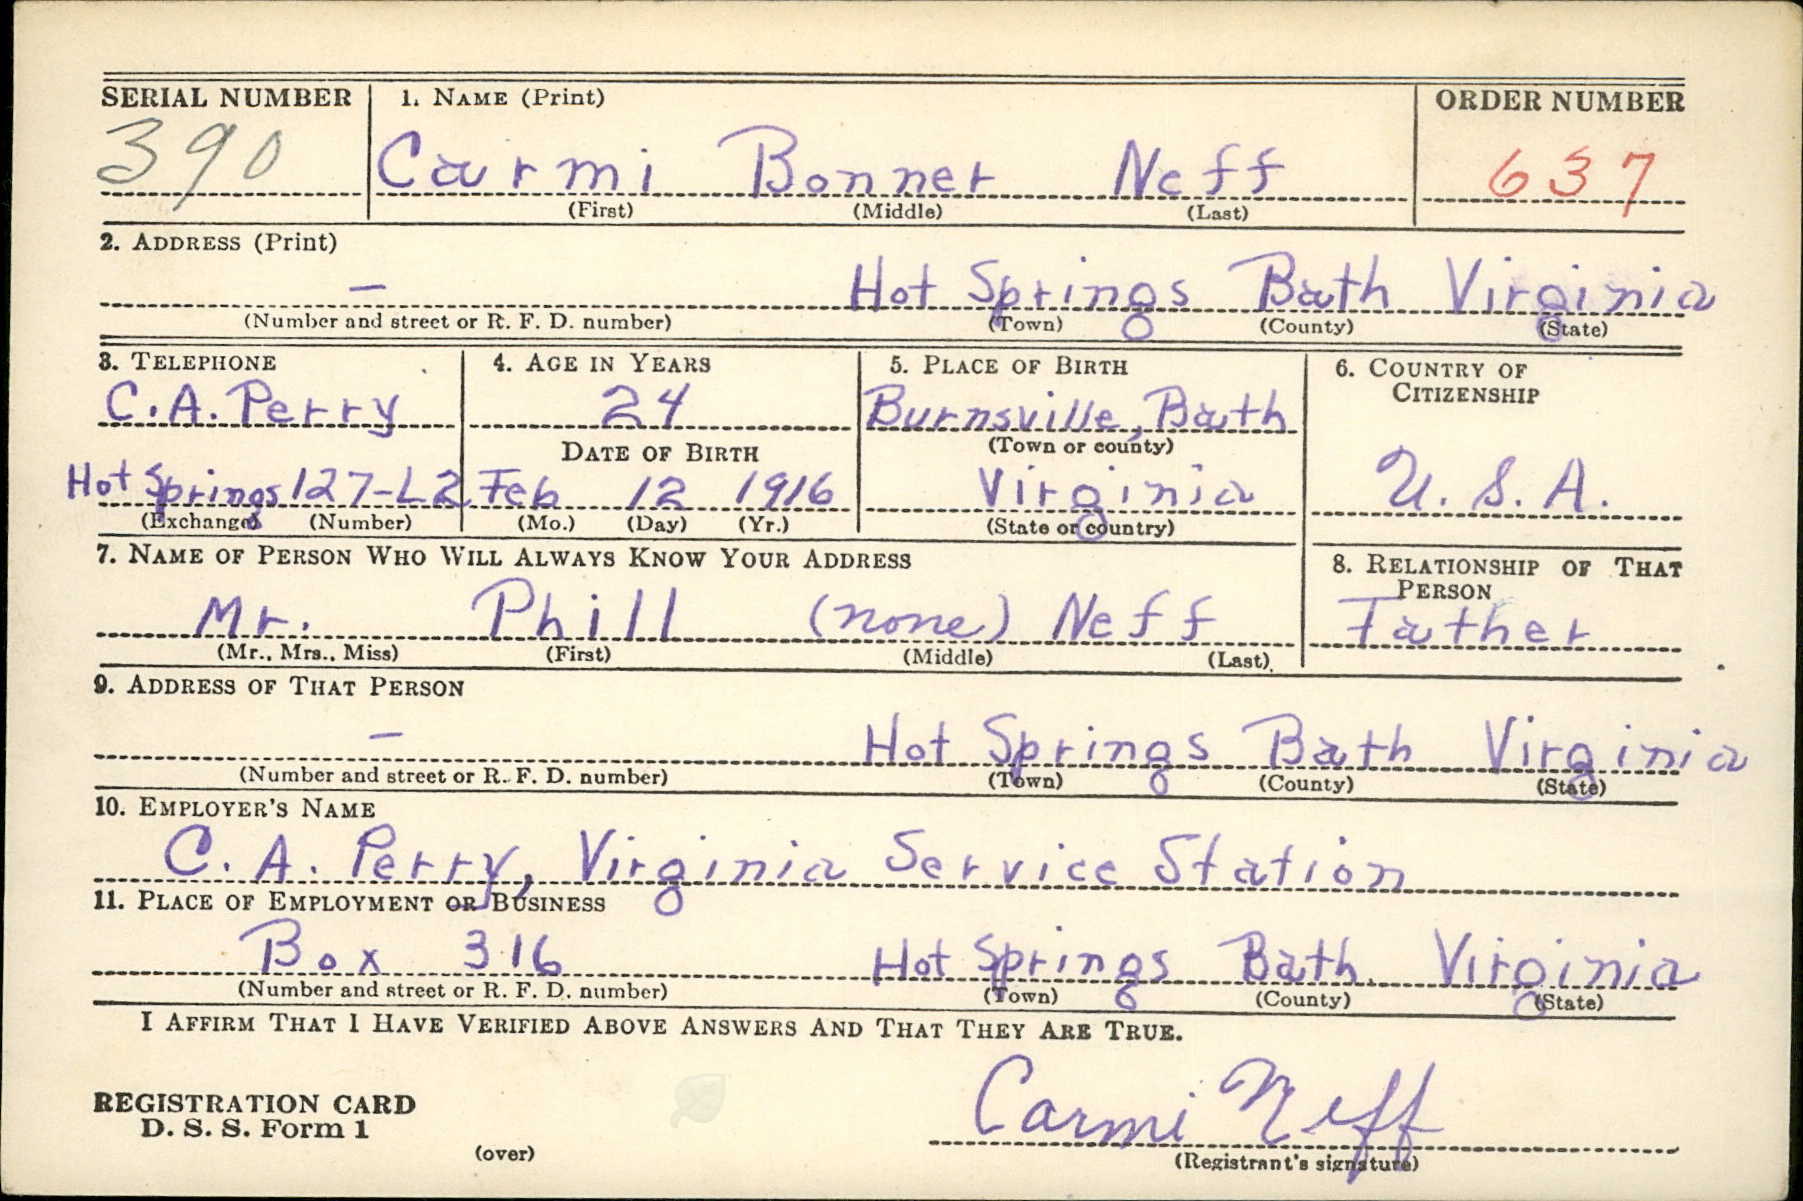 SERIAL NUMBER 1. NAME (Print) ORDER NUMBER
390 Carmi Bonner Neff 637
(First) (Middle) (Last)
2. ADDRESS (Print)
— Hot Springs Bath Virginia
(Number and street or R. F. D. number) (Town) (County) (State)
3. TELEPHONE 4. AGE IN YEARS 5. PLACE OF BIRTH 6. COUNTRY OF
CITIZENSHIP
C.A. Perry 24 Burnsville, Bath
DATE OF BIRTH (Town or county)
Hot Springs 127-L2 Feb 12 1916 Virginia U.S.A.
(Exchange) (Number) (Mo.) (Day) (Yr.) (State or country)
7. NAME OF PERSON WHO WILL ALWAYS KNOW YOUR ADDRESS 8. RELATIONSHIP OF THAT
PERSON
Mr. Phill (none) Neff Father
(Mr., Mrs., Miss) (First) (Middle) (Last)
9. ADDRESS OF THAT PERSON
— Hot Springs Bath Virginia
(Number and street or R. F. D. number) (Town) (County) (State)
10. EMPLOYER'S NAME
C. A. Perry, Virginia Service Station
11. PLACE OF EMPLOYMENT OR BUSINESS
Box 316 Hot Springs Bath Virginia
(Number and street or R. F. D. number) (Town) (County) (State)
I AFFIRM THAT I HAVE VERIFIED ABOVE ANSWERS AND THAT THEY ARE TRUE.
REGISTRATION CARD
D. S. S. Form 1 Carmi Neff
(over) (Registrant's signature)